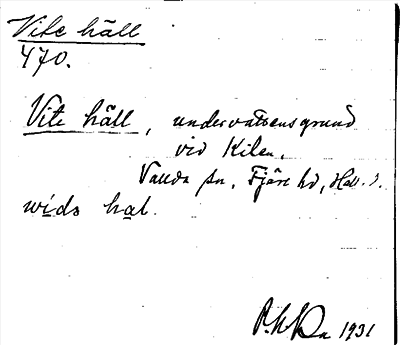 Vite häll
470.
Vite häll, undervattensgrund
vid Kilen.
Vallda sn, Fjäre hd, Hall. l.
wids hal.
1931